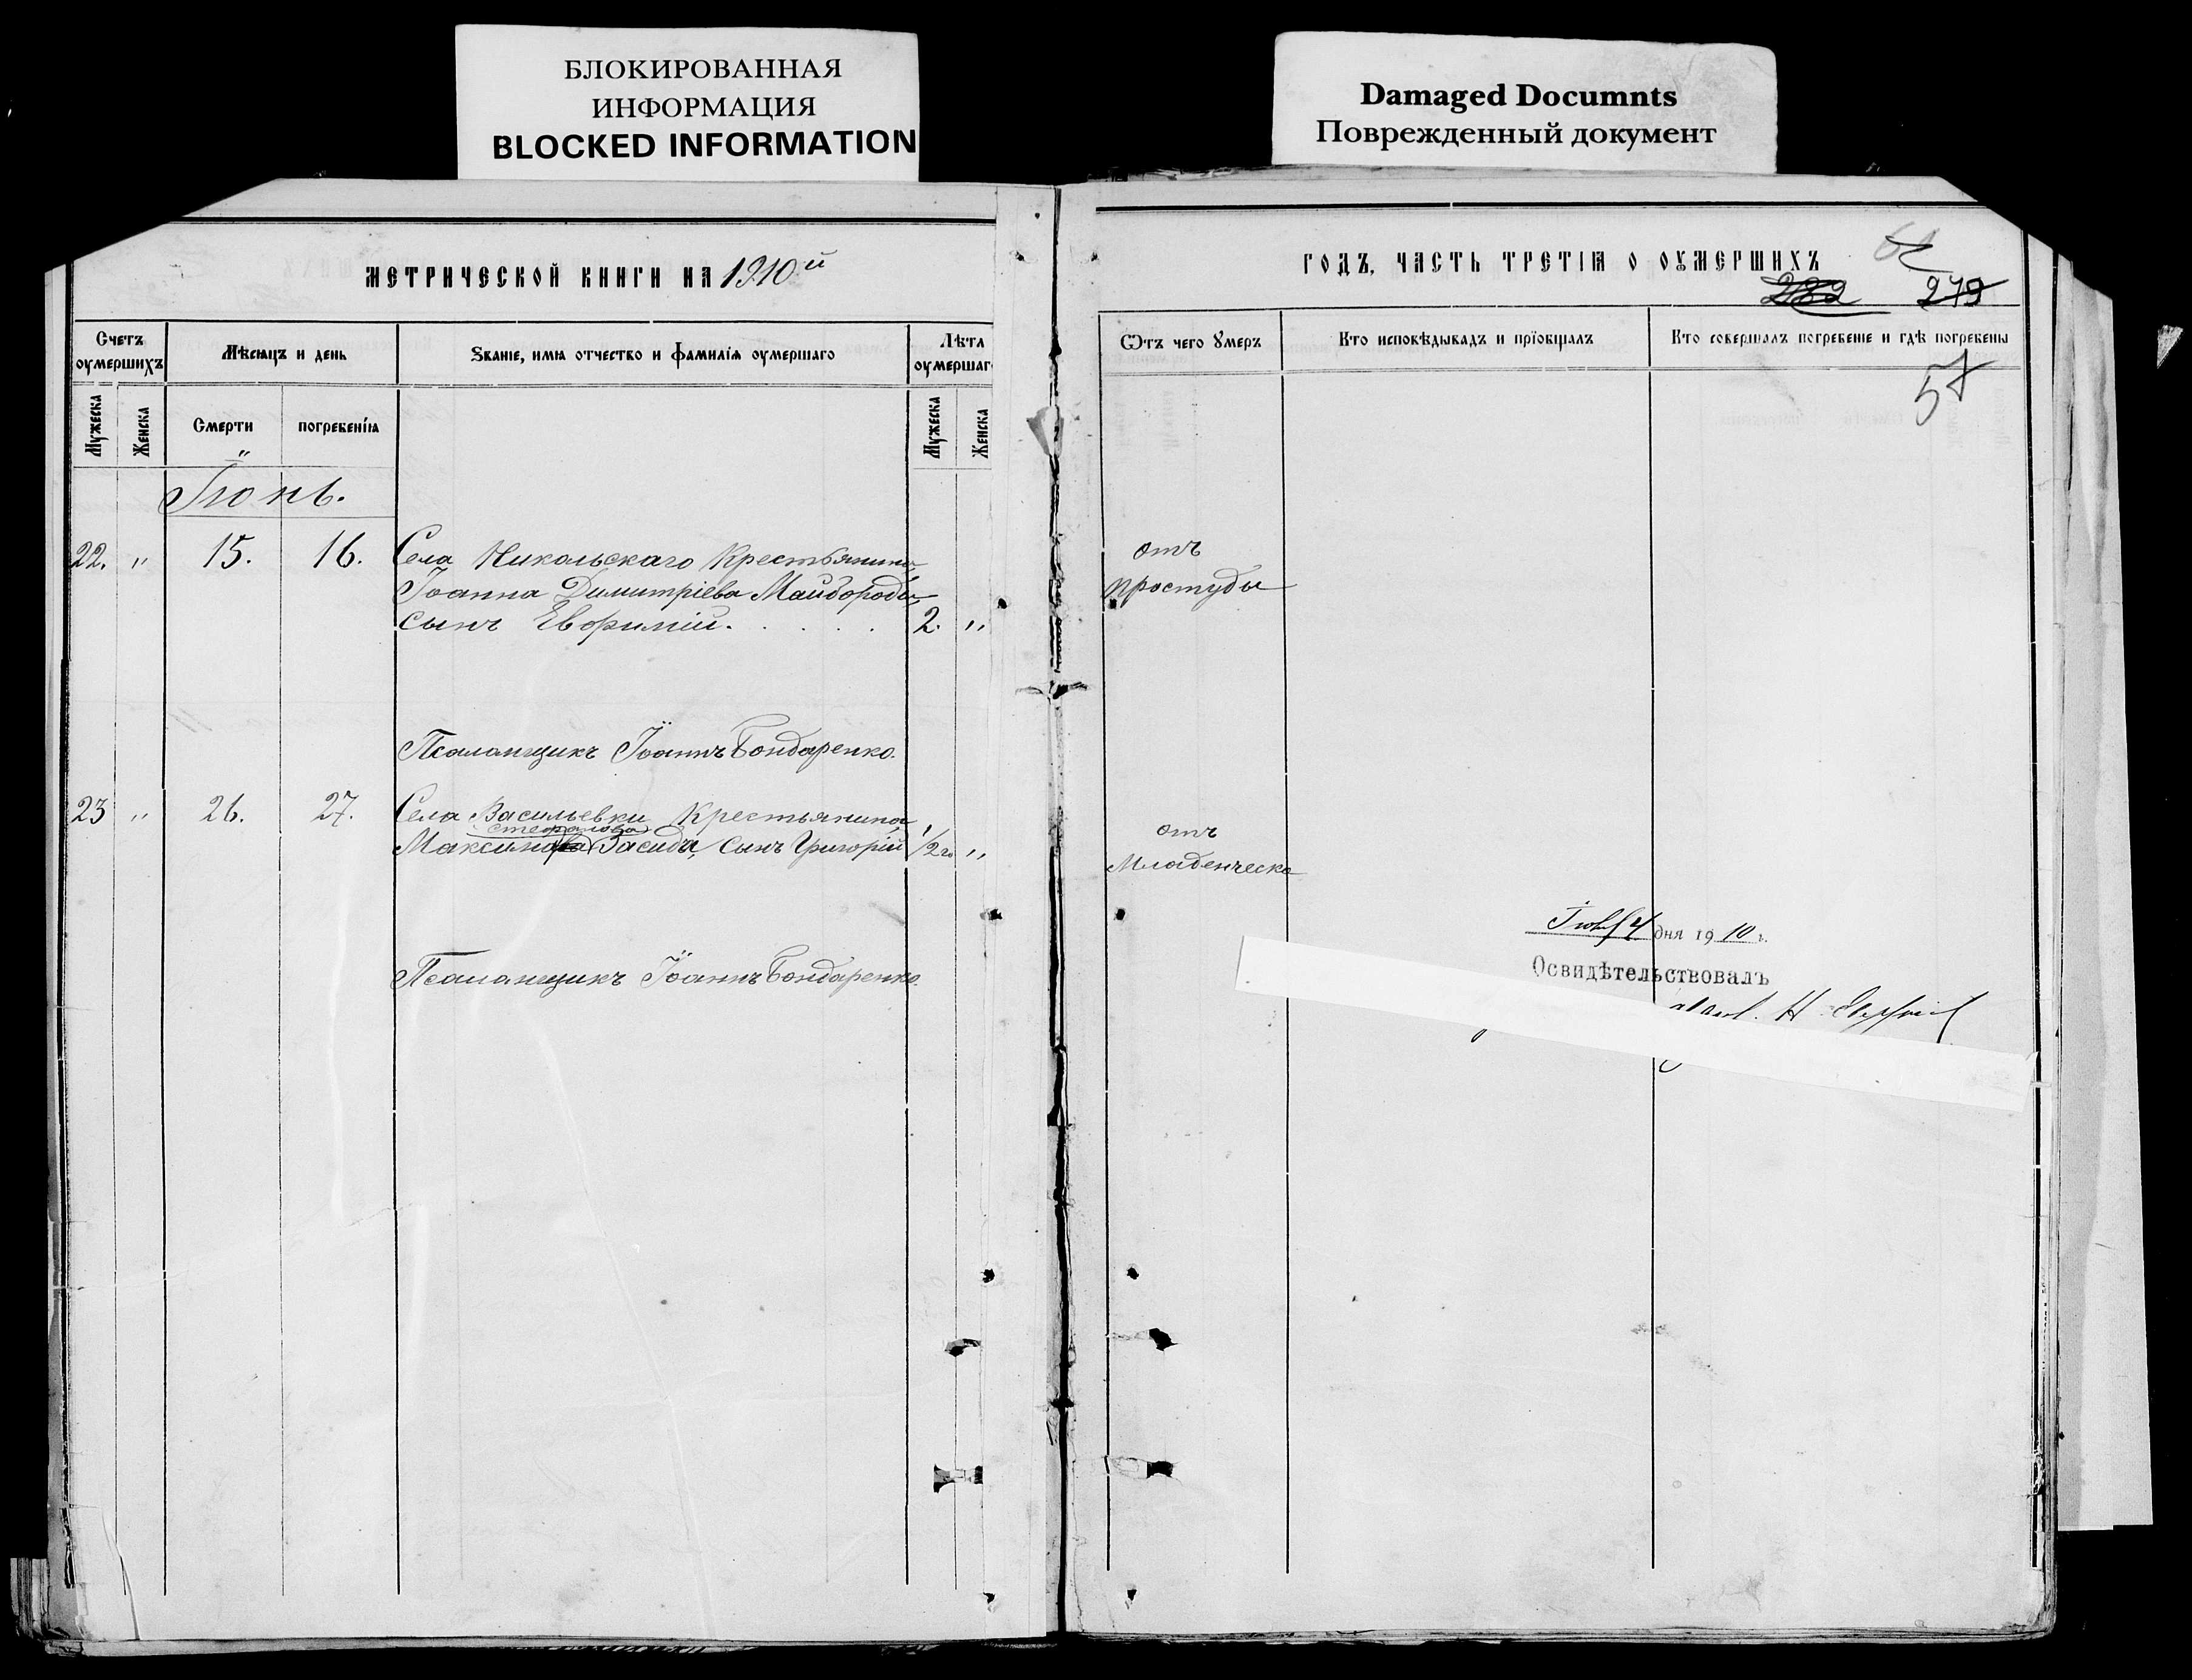 БЛОКИРОВАННАЯ
ИНФОРМАЦИЯ
BLOCKED INFORMATION
Damaged Documnts
Поврежденный документ
МЕТРИЧЕСКОЙ КНИГИ НА 1910й
Счетъ оумершихъ
Мѣсяцъ и день
Званіе, имя отчество и фамилія оумершаго
Лѣта оумершаг
Мужеска
Женска
Смерти
погребенія
Мужеска
Женска
Іюнь.
22. " 15. 16. Села Никольскаго Крестьянина
Іоанна Димитріева Майбороды
сынъ Евфимій. . . . . 2. "
Псаломщикъ Іоаннъ Бондаренко.
23 " 26. 27. Села Васильевки Крестьянина
Стефанова
Максима Засида, сынъ Григорій 1/2 г. "
Псаломщикъ Іоаннъ Бондаренко.
ГОДЪ, ЧАСТЬ ТРЕТІЯ О ОУМЕРШИХЪ
282 279
Ѿтъ чего Умеръ
Кто исповѣдывадъ и пріобщалъ
Кто совершалъ погребеніе и гдѣ погребены
57
отъ
простуды
отъ
Младенческо
дня 1910 г.
Освидѣтельствовалъ